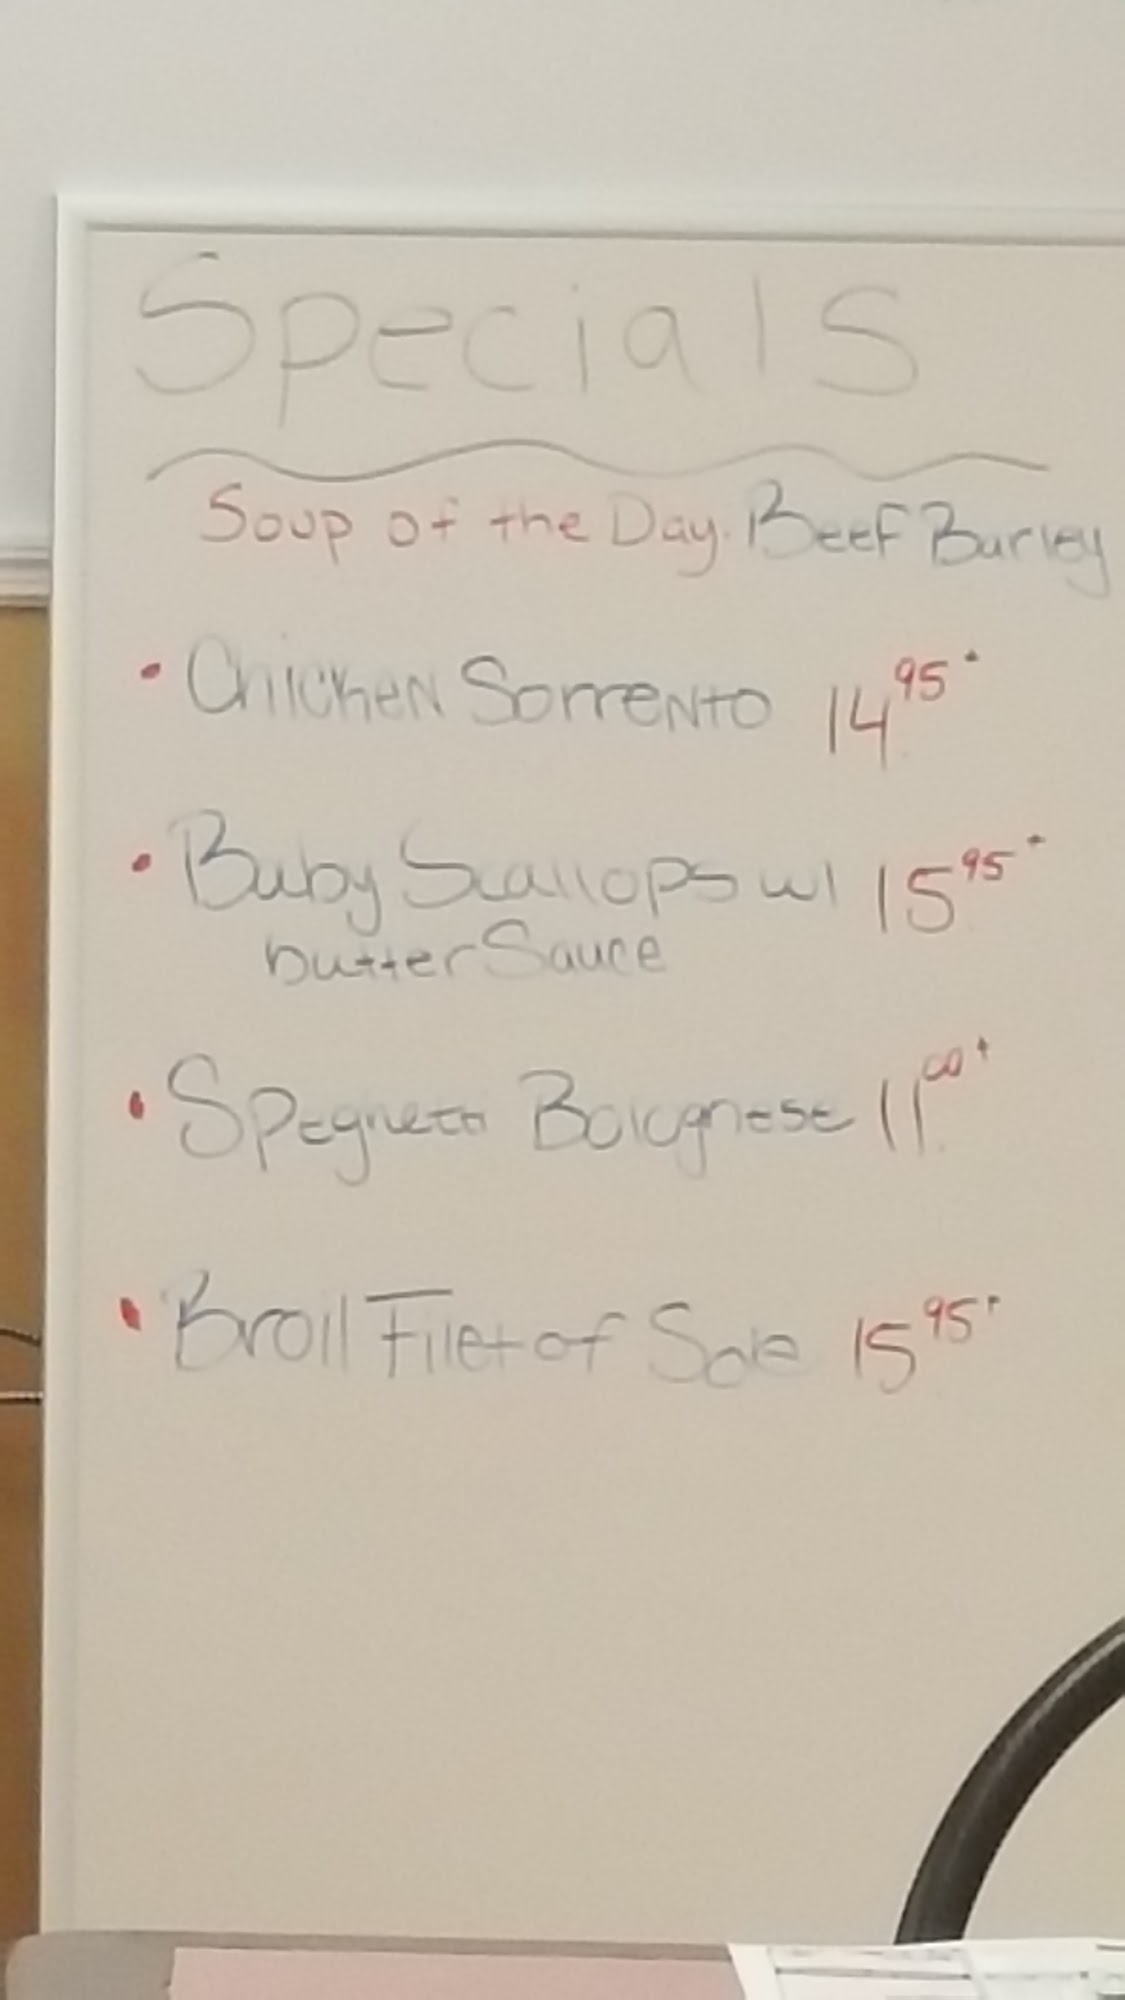 Specials
Soup of the Day. Beef Barley
• Chicken Sorrento 14.95
• Baby Scallops w/ 15.95
butter Sauce
• Spegheti Bolognese 11.00
• Broil Filet of Sole 15.95